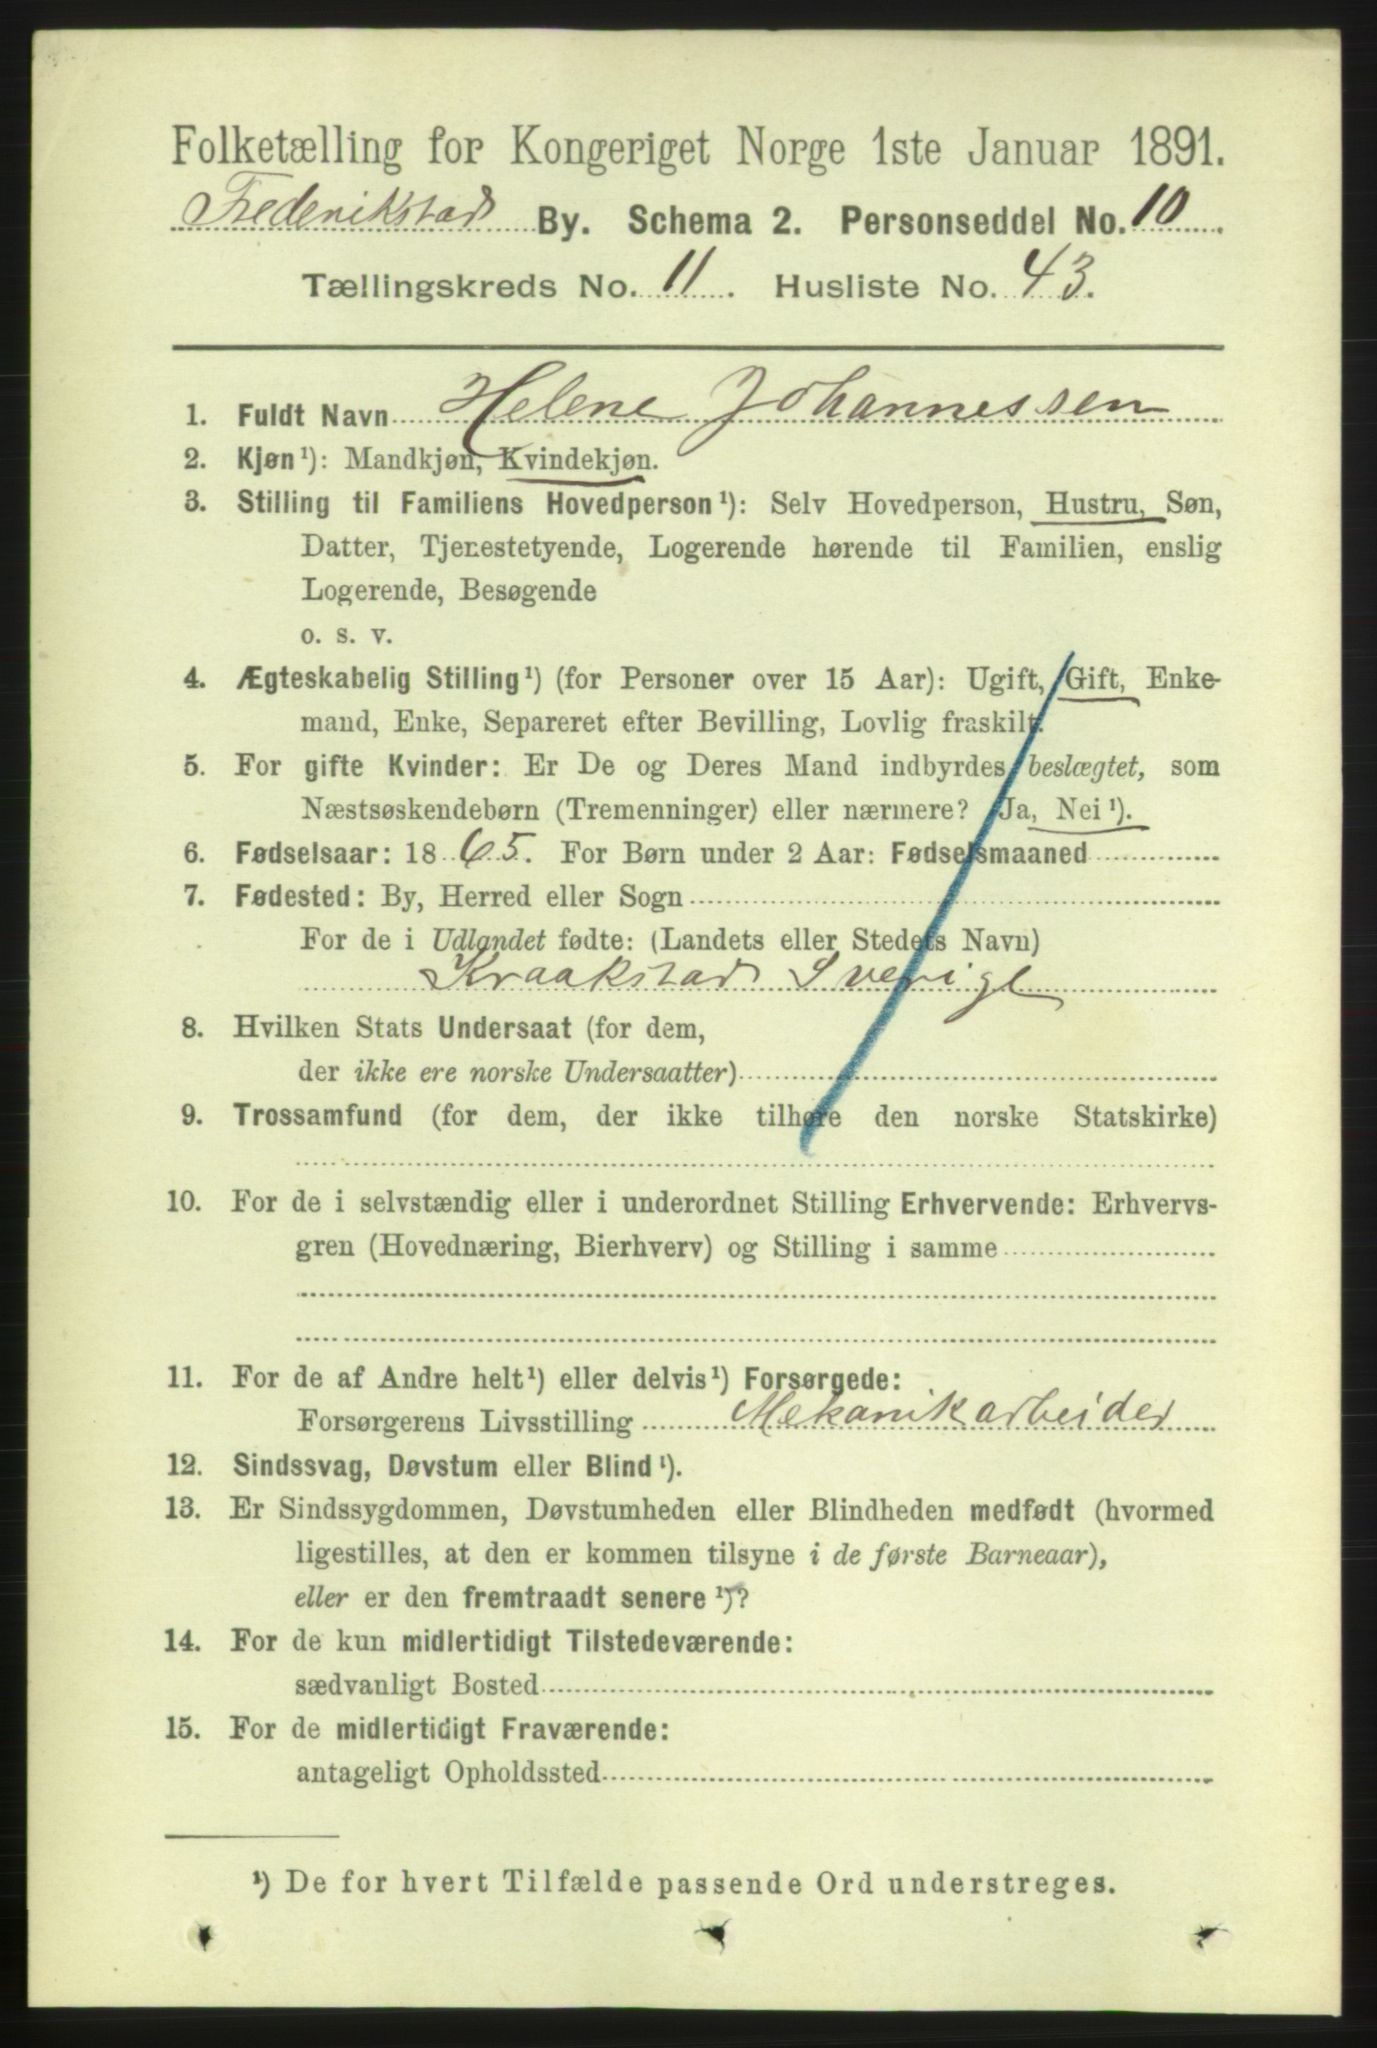 Folketælling for Kongeriget Norge 1ste Januar 1891.
Frederikstad By. Schema 2. Personseddel No. 10
Tællingskreds No. 11. Husliste No. 43.
1. Fuldt Navn Helene Johannessen
2. Kjøn¹): Mandkjøn, Kvindekjøn.
3. Stilling til Familiens Hovedperson¹): Selv Hovedperson, Hustru, Søn,
Datter, Tjenestetyende, Logerende hørende til Familien, enslig
Logerende, Besøgende
o. s. v.
4. Ægteskabelig Stilling¹) (for Personer over 15 Aar): Ugift, Gift, Enke-
mand, Enke, Separeret efter Bevilling, Lovlig fraskilt.
5. For gifte Kvinder: Er De og Deres Mand indbyrdes beslægtet, som
Næstsøskendebørn (Tremenninger) eller nærmere? Ja, Nei¹).
6. Fødselsaar: 1865. For Børn under 2 Aar: Fødselsmaaned
7. Fødested: By, Herred eller Sogn
For de i Udlandet fødte: (Landets eller Stedets Navn)
Kraakstad Sverige
8. Hvilken Stats Undersaat (for dem,
der ikke ere norske Undersaatter)
9. Trossamfund (for dem, der ikke tilhøre den norske Statskirke)
10. For de i selvstændig eller i underordnet Stilling Erhvervende: Erhvervs-
gren (Hovednæring, Bierhverv) og Stilling i samme
11. For de af Andre helt¹) eller delvis¹) Forsørgede:
Forsørgerens Livsstilling Mekanikarbeider
12. Sindssvag, Døvstum eller Blind¹).
13. Er Sindssygdommen, Døvstumheden eller Blindheden medfødt (hvormed
ligestilles, at den er kommen tilsyne i de første Barneaar),
eller er den fremtraadt senere¹)?
14. For de kun midlertidigt Tilstedeværende:
sædvanligt Bosted
15. For de midlertidigt Fraværende:
antageligt Opholdssted
¹) De for hvert Tilfælde passende Ord understreges.